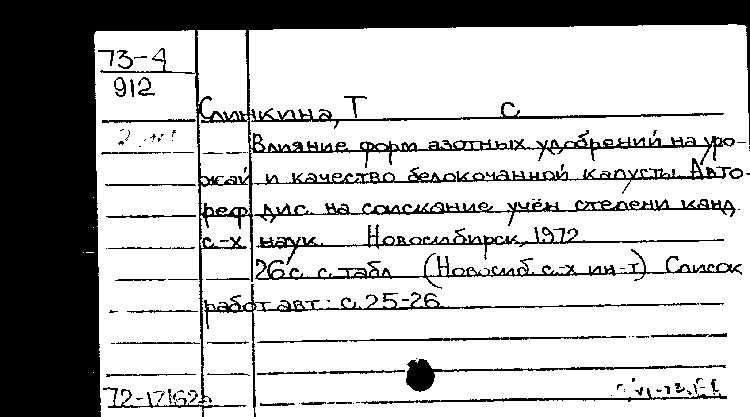 73-4
912
Слинкина, Т С
2 экз
Влияние форм азотных удобрений на уро-
жай и качество белокочанной капусты. Авто-
реф. дис. на соискание учен степени канд.
с.-х наук. Новосибирск, 1972.
26 с. с табл (Новосиб. с.-х ин-т) Список
работ авт.: с. 25-26.